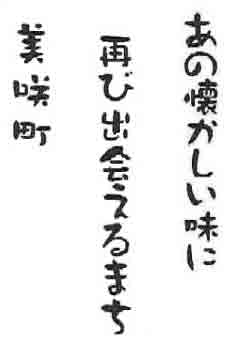 あの懐かしい味に
再び出会えるまち
美咲町